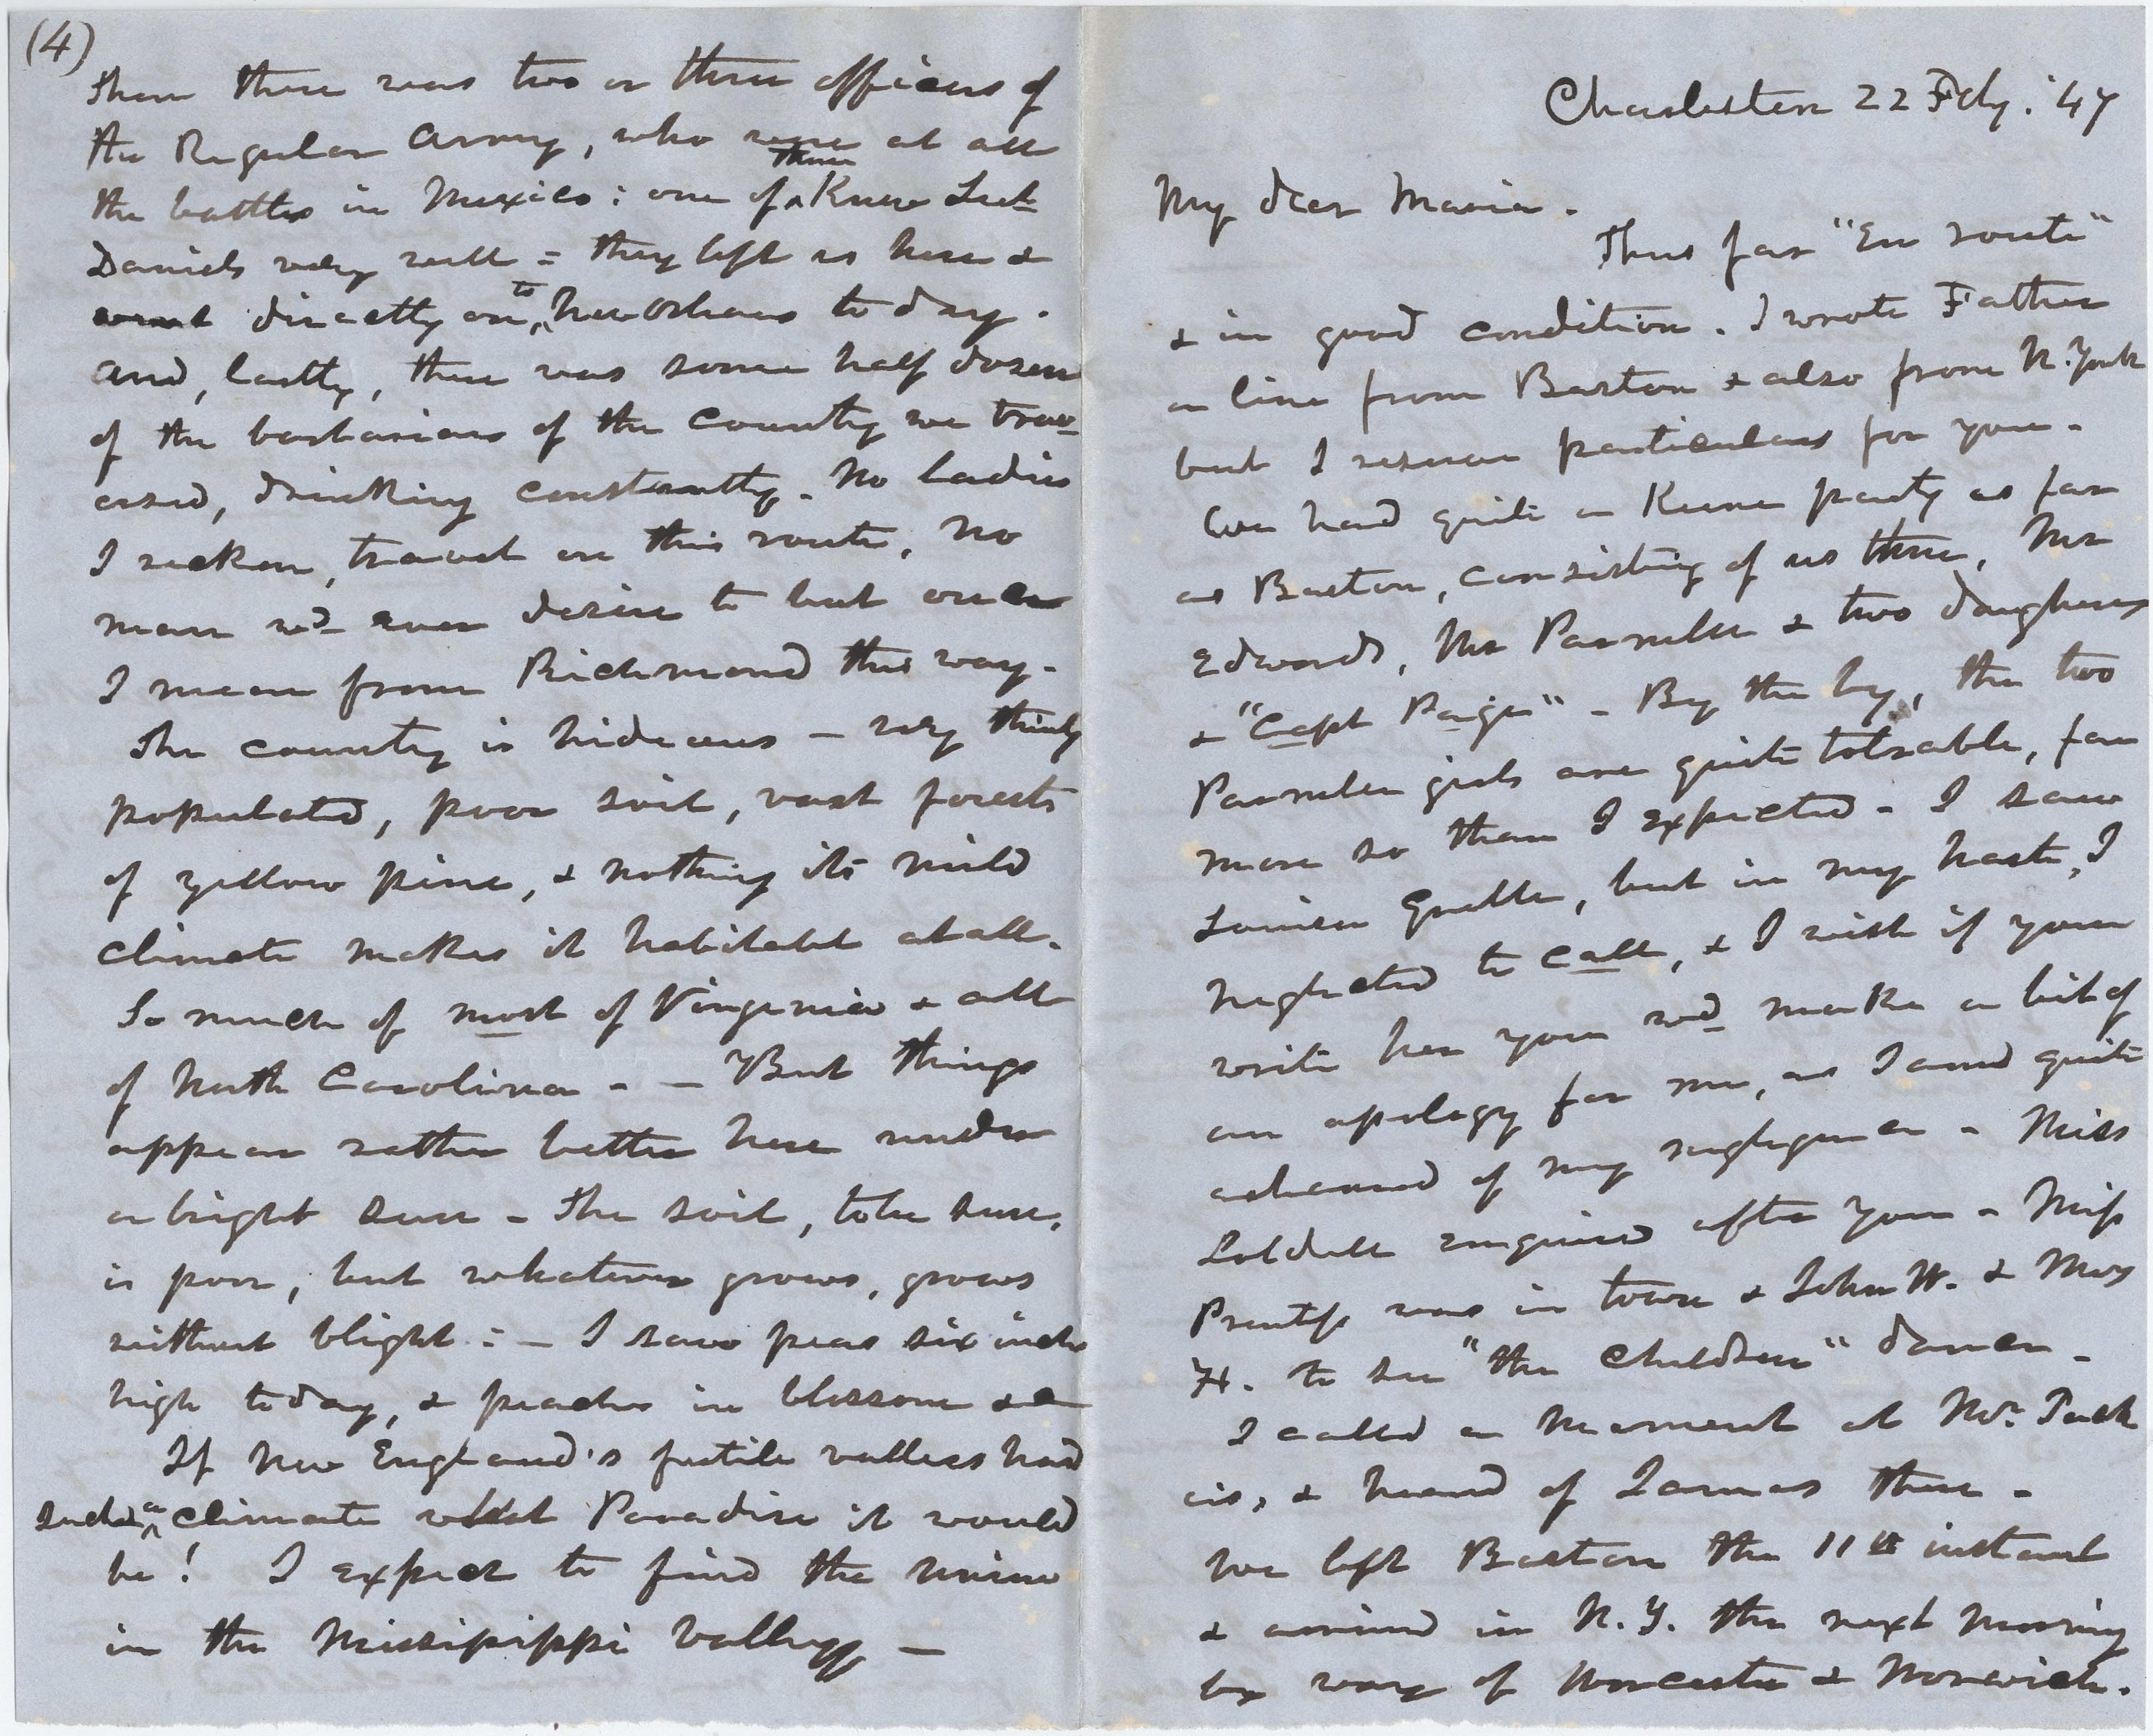 (4)
Then there was two or three officers of
the Regular Army, who were at all
the battles in Mexico: one of them Knew Lieut
Daniels very well = they left us here &
went directly on to New Orleans to day.
And, lastly, there was some half dozen
of the barbarians of the country we trav-
ersed, drinking constantly. No ladies
I reckon, travel on this route, No
man wd. ever desire to but once
I mean from Richmond this way.
The country is hideous - very thinly
populated, poor soil, vast forests
of yellow pine, & nothing its mild
climate makes it habitabl at all.
So much of most of Virginia & all
of North Carolina - - But things
appear rather better here under
a bright sun - The soil, to be sure,
is poor, but whatever grows, grows
without blight : - I saw peas six inches
high to day, & peaches in blossom &c
If New England's fertile valleys had
such a climate what Paradise it would
be! I expect to find the union
in the Mississippi Valley —
Charleston 22 Feby. '47
My dear Maria.
Thus far "En route"
& in good condition. I wrote Father
a line from Boston & also from N. York
but I reserve particulars for you.
We had quite a Keene party as far
as Boston, consisting of us three, Mr
Edwards, Mr Parmelee & two daughters
& "Capt Paige" - By the by, the two
Parmelee girls are quite tolerable, far
more so than I expected - I saw
Louisa, but in my haste, I
neglected to call, & I wish if you
write her you wd make a bit of
an apology for me, as I am quite
ashamed of my negligence - Miss
enquired after you - Miss
Prentiss was in town & John W. & Mrs
H. to see "the Children" dance -
I called a moment at Mr. Tuck
is, & heard of James there -
We left Boston the 11th instant
& arrived in N. Y. the next morning
by way of Worcester & Norwich.